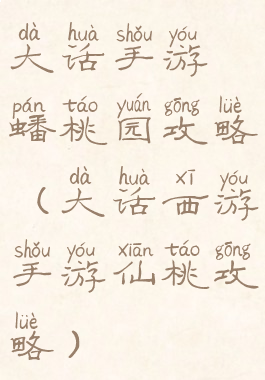 dà huà shǒu yóu
大话手游
pán táo yuán gōng lüè
蟠桃园攻略
dà huà xī yóu
（大话西游
shǒu yóu xiān táo gōng
手游仙桃攻
lüè
略）